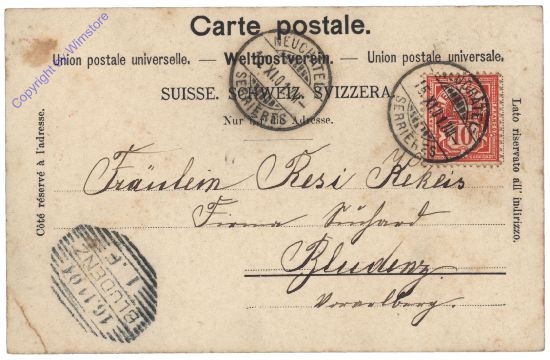 Carte postale.
Union postale universelle. — Weltpostverein. — Unione postale universale.
SUISSE. SCHWEIZ. SVIZZERA.
Nur für die Adresse.
Côté réservé à l'adresse.
Lato riservato all' indirizzo.
NEUCHATEL
SERRIÈRES
NEUCHATEL
SERRIÈRES
10
Fräulein Resi Kekeis
Firma Suchard
Bludenz
Vorarlberg.
BLUDENZ
16.11.01
Copyright by Wimstore